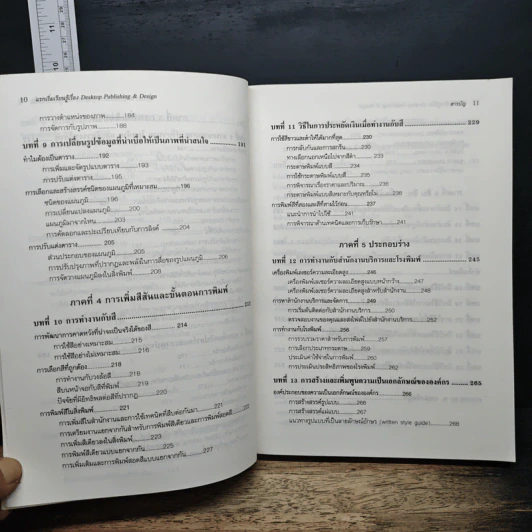 10 แรกเริ่มเรียนรู้เรื่อง Desktop Publishing & Design
การวางตำแหน่งของภาพ..........184
การจัดการกับรูปภาพ..........188
บทที่ 9 การเปลี่ยนรูปข้อมูลที่น่าเบื่อให้เป็นภาพที่น่าสนใจ ..........191
ทำไมต้องเป็นตาราง..........192
การเพิ่มและจัดรูปแบบตาราง..........193
การปรับแต่งตาราง..........195
การเลือกและสร้างสรรค์ชนิดของแผนภูมิที่เหมาะสม..........196
ชนิดของแผนภูมิ..........196
การเปลี่ยนแปลงแผนภูมิ..........200
แผนภูมิมาจากไหน..........203
การคัดลอกและเปรียบเทียบกับการลิงค์..........204
การปรับแต่งตาราง..........205
ส่วนประกอบของแผนภูมิ..........205
การปรับปรุงภาพที่ปรากฏและพลังในการสื่อของรูปแผนภูมิ..........206
การจัดวางแผนภูมิลงในสิ่งพิมพ์..........208
ภาคที่ 4 การเพิ่มสีสันและขั้นตอนการพิมพ์
บทที่ 10 การทำงานกับสี
การพัฒนาการคาดหวังที่น่าจะเป็นจริงได้ของสี..........214
การใช้สีอย่างเหมาะสม..........214
การใช้สีอย่างไม่เหมาะสม..........215
การเลือกสีที่ถูกต้อง..........218
การทำงานกับวงล้อสี..........218
สืบหน้าจอกับสีที่พิมพ์..........219
ปัจจัยที่มีอิทธิพลต่อสีที่ปรากฏ..........220
การพิมพ์สีในสิ่งพิมพ์..........221
การเพิ่มสีในสำนักงานและการใช้เทคนิคที่สืบต่อกันมา..........221
การเตรียมงานแยกจากกันสำหรับการพิมพ์สีเดียวและการพิมพ์สอดสี
การเพิ่มสีเดียวลงในสิ่งพิมพ์..........223
การพิมพ์สีเดียวแบบแยกจากกัน..........225
การเพิ่มเติมและการพิมพ์สอดสีแบบแยกจากกัน..........227
สารบัญ 11
บทที่ 11 วิธีในการประหยัดเงินเมื่อทำงานกับสี..........229
การใช้สีขาวและดำให้ได้มากที่สุด..........230
การกลับกันและการสกรีน..........230
ทางเลือกแทนหนือไปจากสีดำ..........233
กระดาษพิมพ์แบบสี..........234
การใช้กระดาษพิมพ์แบบสี..........235
การพิจารณาเรื่องราคาและปริมาณ..........236
กระดาษพิมพ์แบบสีเหมาะกับคุณหรือไม่..........236
การพิมพ์สีที่สมองสีที่ตามได้ก่อน..........237
แนะนำการนำไปใช้..........241
การพิจารณาด้านเทคนิคและการเก็บรักษา..........241
ภาคที่ 5 ประกอบร่าง
บทที่ 12 การทำงานกับสำนักงานบริการและโรงพิมพ์..........245
เครื่องพิมพ์เลเซอร์ความละเอียดสูง..........246
เครื่องพิมพ์เลเซอร์ความละเอียดสูงแบบหน้ากว้าง..........247
เครื่องพิมพ์เลเซอร์ความละเอียดสูงสำหรับสำนักงาน..........248
การหาสำนักงานบริการและจัดการ..........249
การเริ่มต้นติดต่อกับสำนักงานบริการ..........250
ตรวจสอบงานของคุณและส่งไฟล์ไปยังสำนักงานบริการ..........252
การทำงานกับโรงพิมพ์..........258
การรวบรวมราคาสำหรับการพิมพ์..........258
การเลือกประเภทกระดาษ..........259
ประเมินค่าใช้จ่ายในการพิมพ์..........260
การประเมินประสิทธิภาพของโรงพิมพ์..........262
บทที่ 13 การสร้างและเพิ่มพูนความเป็นเอกลักษณ์ขององค์กร..........265
องค์ประกอบของความเป็นเอกลักษณ์ขององค์กร..........266
การสร้างสรรค์รูปแบบ..........266
การสร้างสรรค์แม่แบบ..........267
แนวทางรูปแบบที่เป็นลายลักษณ์อักษร (written style guide)..........268